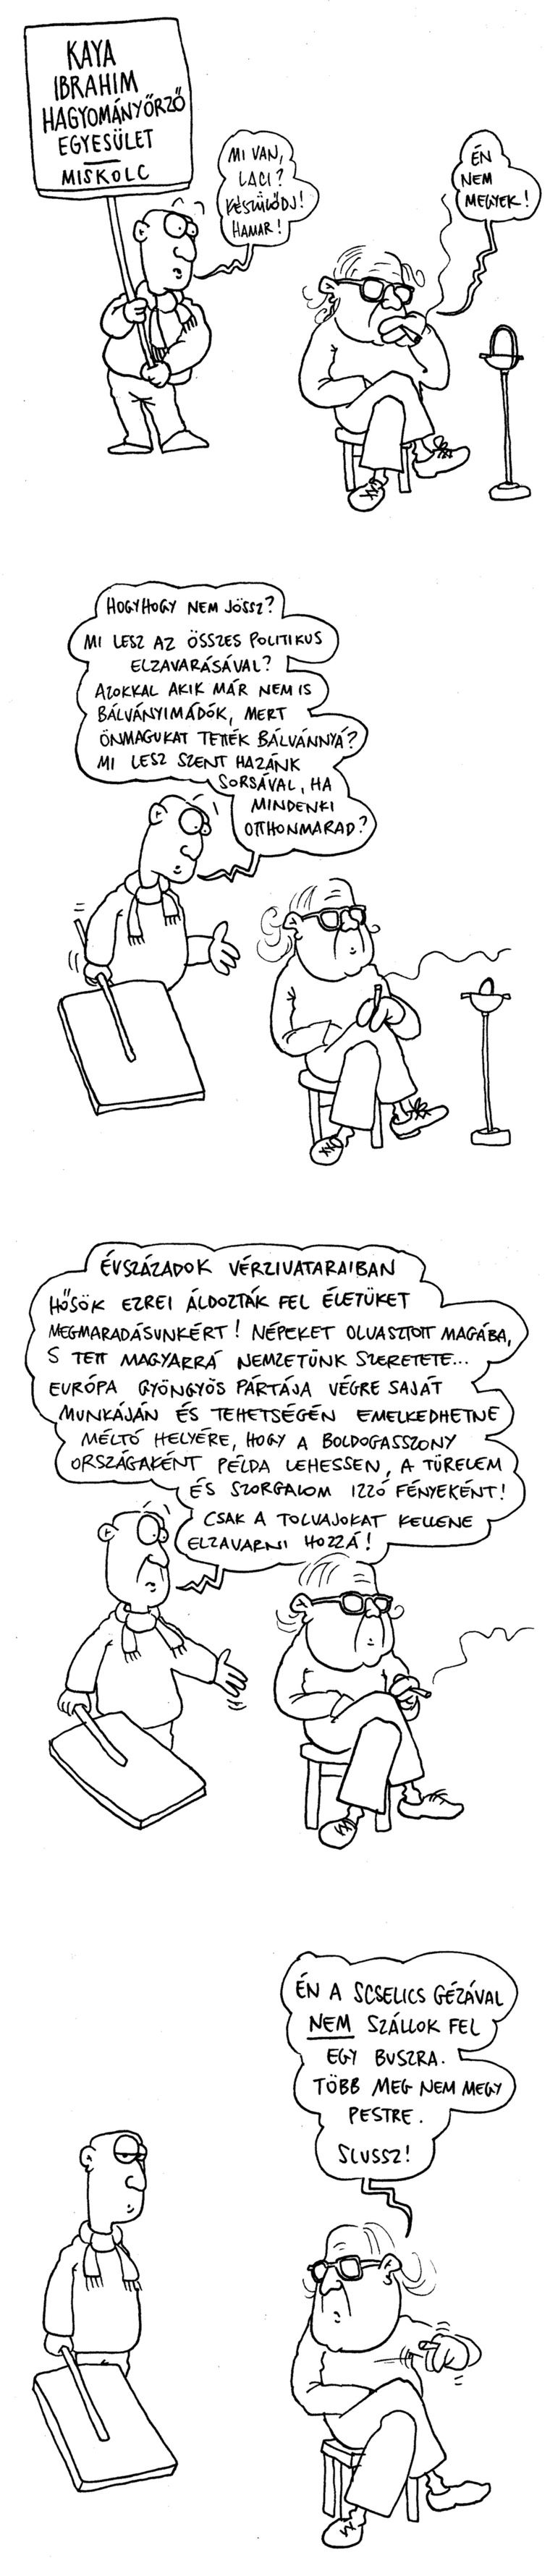 KAYA
IBRAHIM
HAGYOMÁNYŐRZŐ
EGYESÜLET
MISKOLC
MI VAN,
LACI?
KÉSZÜLŐDJ!
HAMAR!
ÉN
NEM
MEGYEK!
HOGYHOGY NEM JÖSSZ?
MI LESZ AZ ÖSSZES POLITIKUS
ELZAVARÁSÁVAL?
AZOKKAL AKIK MÁR NEM IS
BÁLVÁNYIMÁDÓK, MERT
ÖNMAGUKAT TETTÉK BÁLVÁNNYÁ?
MI LESZ SZENT HAZÁNK
SORSÁVAL, HA
MINDENKI
OTTHONMARAD?
ÉVSZÁZADOK VÉRZIVATARAIBAN
HŐSÖK EZREI ÁLDOZTÁK FEL ÉLETÜKET
MEGMARADÁSUNKÉRT! NÉPEKET OLVASZTOTT MAGÁBA,
S TETT MAGYARRÁ NEMZETÜNK SZERETETE...
EURÓPA GYÖNGYÖS PÁRTÁJA VÉGRE SAJÁT
MUNKÁJÁN ÉS TEHETSÉGÉN EMELKEDHETNE
MÉLTÓ HELYÉRE, HOGY A BOLDOGASSZONY
ORSZÁGAKÉNT PÉLDA LEHESSEN, A TÜRELEM
ÉS SZORGALOM IZZÓ FÉNYEKÉNT!
CSAK A TOLVAJOKAT KELLENE
ELZAVARNI HOZZÁ!
ÉN A SCSELICS GÉZÁVAL
NEM SZÁLLOK FEL
EGY BUSZRA.
TÖBB MEG NEM MEGY
PESTRE.
SLUSSZ!